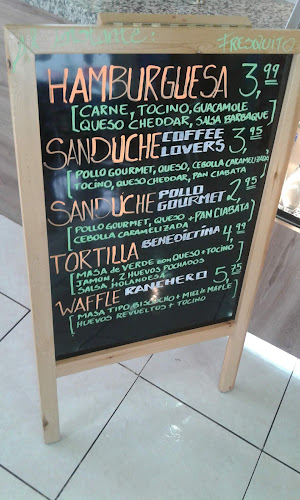 Fresquito
HAMBURGUESA 3,99
[CARNE, TOCINO, GUACAMOLE
QUESO CHEDDAR, SALSA BARBAQUE]
SANDUCHE COFFEE LOVERS 3,95
[POLLO GOURMET, QUESO, CEBOLLA CARAMELIZADA
TOCINO, QUESO CHEDDAR, PAN CIABATA]
SANDUCHE POLLO GOURMET 2,95
[POLLO GOURMET, QUESO + PAN CIABATA
CEBOLLA CARAMELIZADA]
TORTILLA BENEDICTINA 4,99
[MASA de VERDE con QUESO + TOCINO
JAMON, 2 HUEVOS POCHADOS
SALSA HOLANDESA]
WAFFLE RANCHERO 5,75
[MASA TIPO BISCOCHO + MIEL de MAPLE
HUEVOS REVUELTOS + TOCINO]